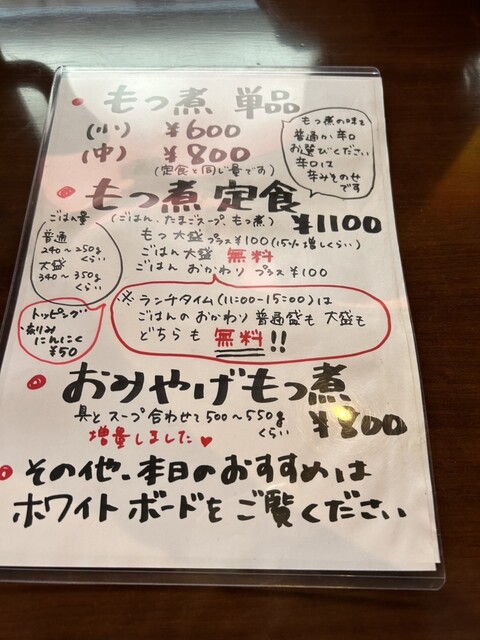 もつ煮 単品
(小) ¥600
(中) ¥800
(定食と同じ量です)
もつ煮の味を
普通か辛口
お選びください
辛口は
辛みそのせ
です
もつ煮 定食
(ごはん、たまごスープ、もつ煮) ¥1100
もつ大盛 プラス¥100(1.5人増しくらい)
ごはん大盛 無料
ごはん おかわり プラス ¥100
ごはん量
普通
240〜250g
くらい
大盛
340〜350g
くらい
※ランチタイム(11:00-15:00)は
ごはんのおかわり 普通盛も大盛も
どちらも 無料!!
トッピング
刻み
にんにく
¥50
おみやげもつ煮
具とスープ合わせて500〜550g
くらい
¥800
増量しました♥
その他、本日のおすすめは
ホワイトボードをご覧ください